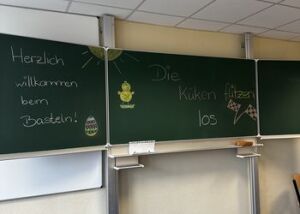 Herzlich
willkommen
beim
Basteln!
Die
Küken flitzen
los